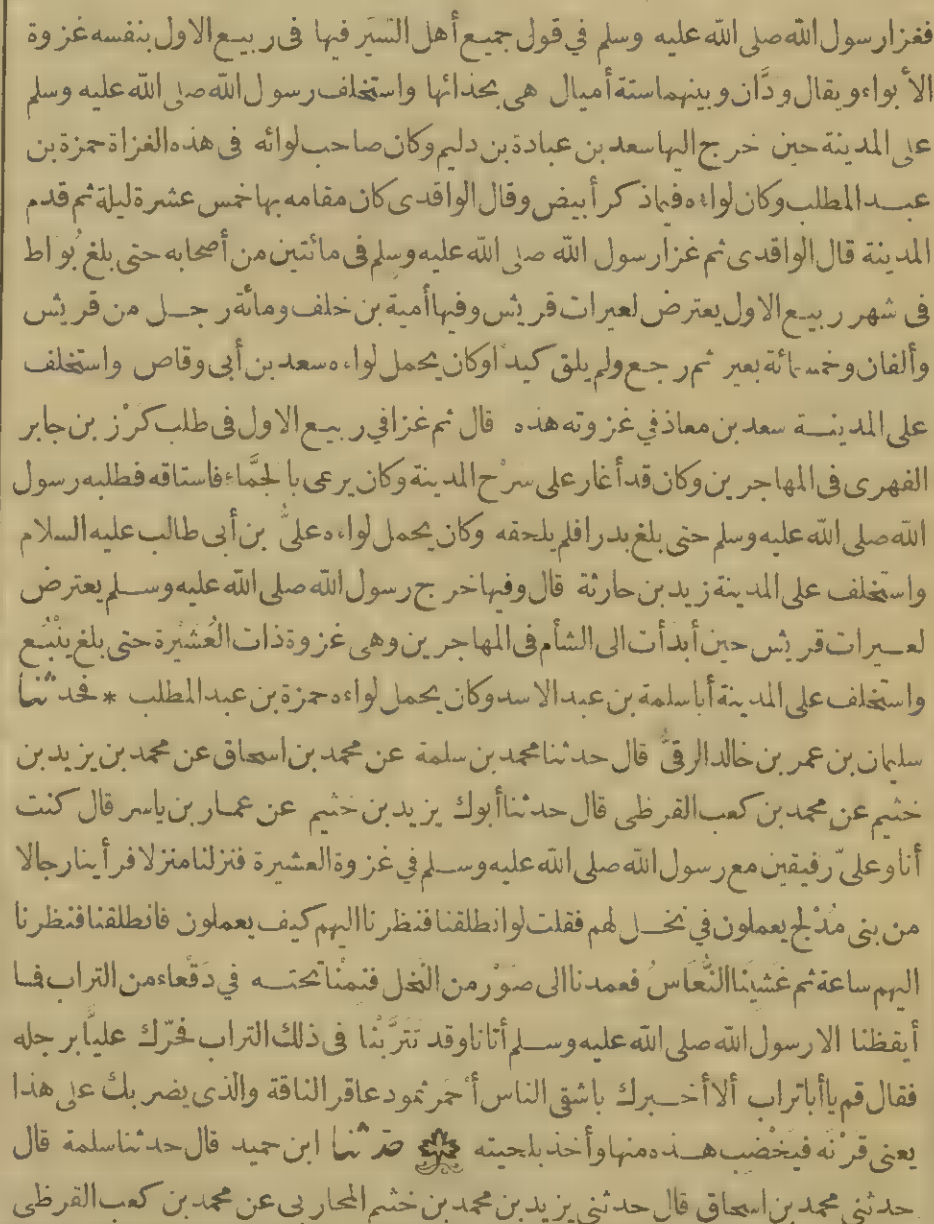 فغزا رسول الله صلى الله عليه وسلم في قول جميع أهل السّيَر فيها في ربيع الاول بنفسه غزوة
الأبواء ويقال ودَّان وبينهما ستة أميال هي بحذائها واستخلف رسول الله صلى الله عليه وسلم
على المدينة حين خرج اليها سعد بن عبادة بن دليم وكان صاحب لوائه في هذه الغزاة حمزة بن
عبد المطلب وكان لواءه فيما ذكر أبيض وقال الواقدى كان مقامه بها خمس عشرة ليلة ثم قدم
المدينة قال الواقدى ثم غزا رسول الله صلى الله عليه وسلم في مائتين من أصحابه حتى بلغ بُواط
في شهر ربيع الاول يعترض لعيرات قريش وفيها أمية بن خلف ومائة رجل من قريش
وألفان وخمسمائة بعير ثم رجع ولم يلق كيداً وكان يحمل لواءه سعد بن أبى وقاص واستخلف
على المدينة سعد بن معاذ في غزوته هذه قال ثم غزا في ربيع الاول في طلب كرْز بن جابر
الفهرى في المهاجرين وكان قد أغار على سرْح المدينة وكان يرعى بالجمَّاء فاستاقه فطلبه رسول
الله صلى الله عليه وسلم حتى بلغ بدرا فلم يلحقه وكان يحمل لواءه علىُّ بن أبى طالب عليه السلام
واستخلف على المدينة زيد بن حارثة قال وفيها خرج رسول الله صلى الله عليه وسلم يعترض
لعيرات قريش حين أبدأت الى الشأم في المهاجرين وهى غزوة ذات العُشَيْرة حتى بلغ ينْبُع
واستخلف على المدينة أبا سلمة بن عبد الاسد وكان يحمل لواءه حمزة بن عبد المطلب * فحدثنا
سليمان بن عمر بن خالد الرقىُّ قال حدثنا محمد بن سلمة عن محمد بن اسحاق عن محمد بن يزيد بن
خثيم عن محمد بن كعب القرظى قال حدثنا أبوك يزيد بن خثيم عن عمار بن ياسر قال كنت
أنا وعلىّ رفيقين مع رسول الله صلى الله عليه وسلم في غزوة العشيرة فنزلنا منزلا فرأينا رجالا
من بنى مُدْلج يعملون في نخل لهم فقلت لو انطلقنا فنظرنا اليهم كيف يعملون فانطلقنا فنظرنا
اليهم ساعة ثم غشينا النُّعَاسُ فعمدنا الى صَوْر من النخل فنمْنا تحته في دَقْعاء من التراب فما
أيقظنا الا رسول الله صلى الله عليه وسلم أتانا وقد تَتَرَّبْنا في ذلك التراب فحرّك عليًّا برجله
فقال قم يا أبا تراب ألا أخبرك باشقى الناس أحْمَرِ ثمود عاقر الناقة والذى يضربك على هذا
يعنى قرْنه فيَخْضب هذه منها وأخذ بلحيته حدثنا ابن حميد قال حدثنا سلمة قال
حدثنى محمد بن اسحاق قال حدثنى يزيد بن محمد بن خثيم المحاربى عن محمد بن كعب القرظى